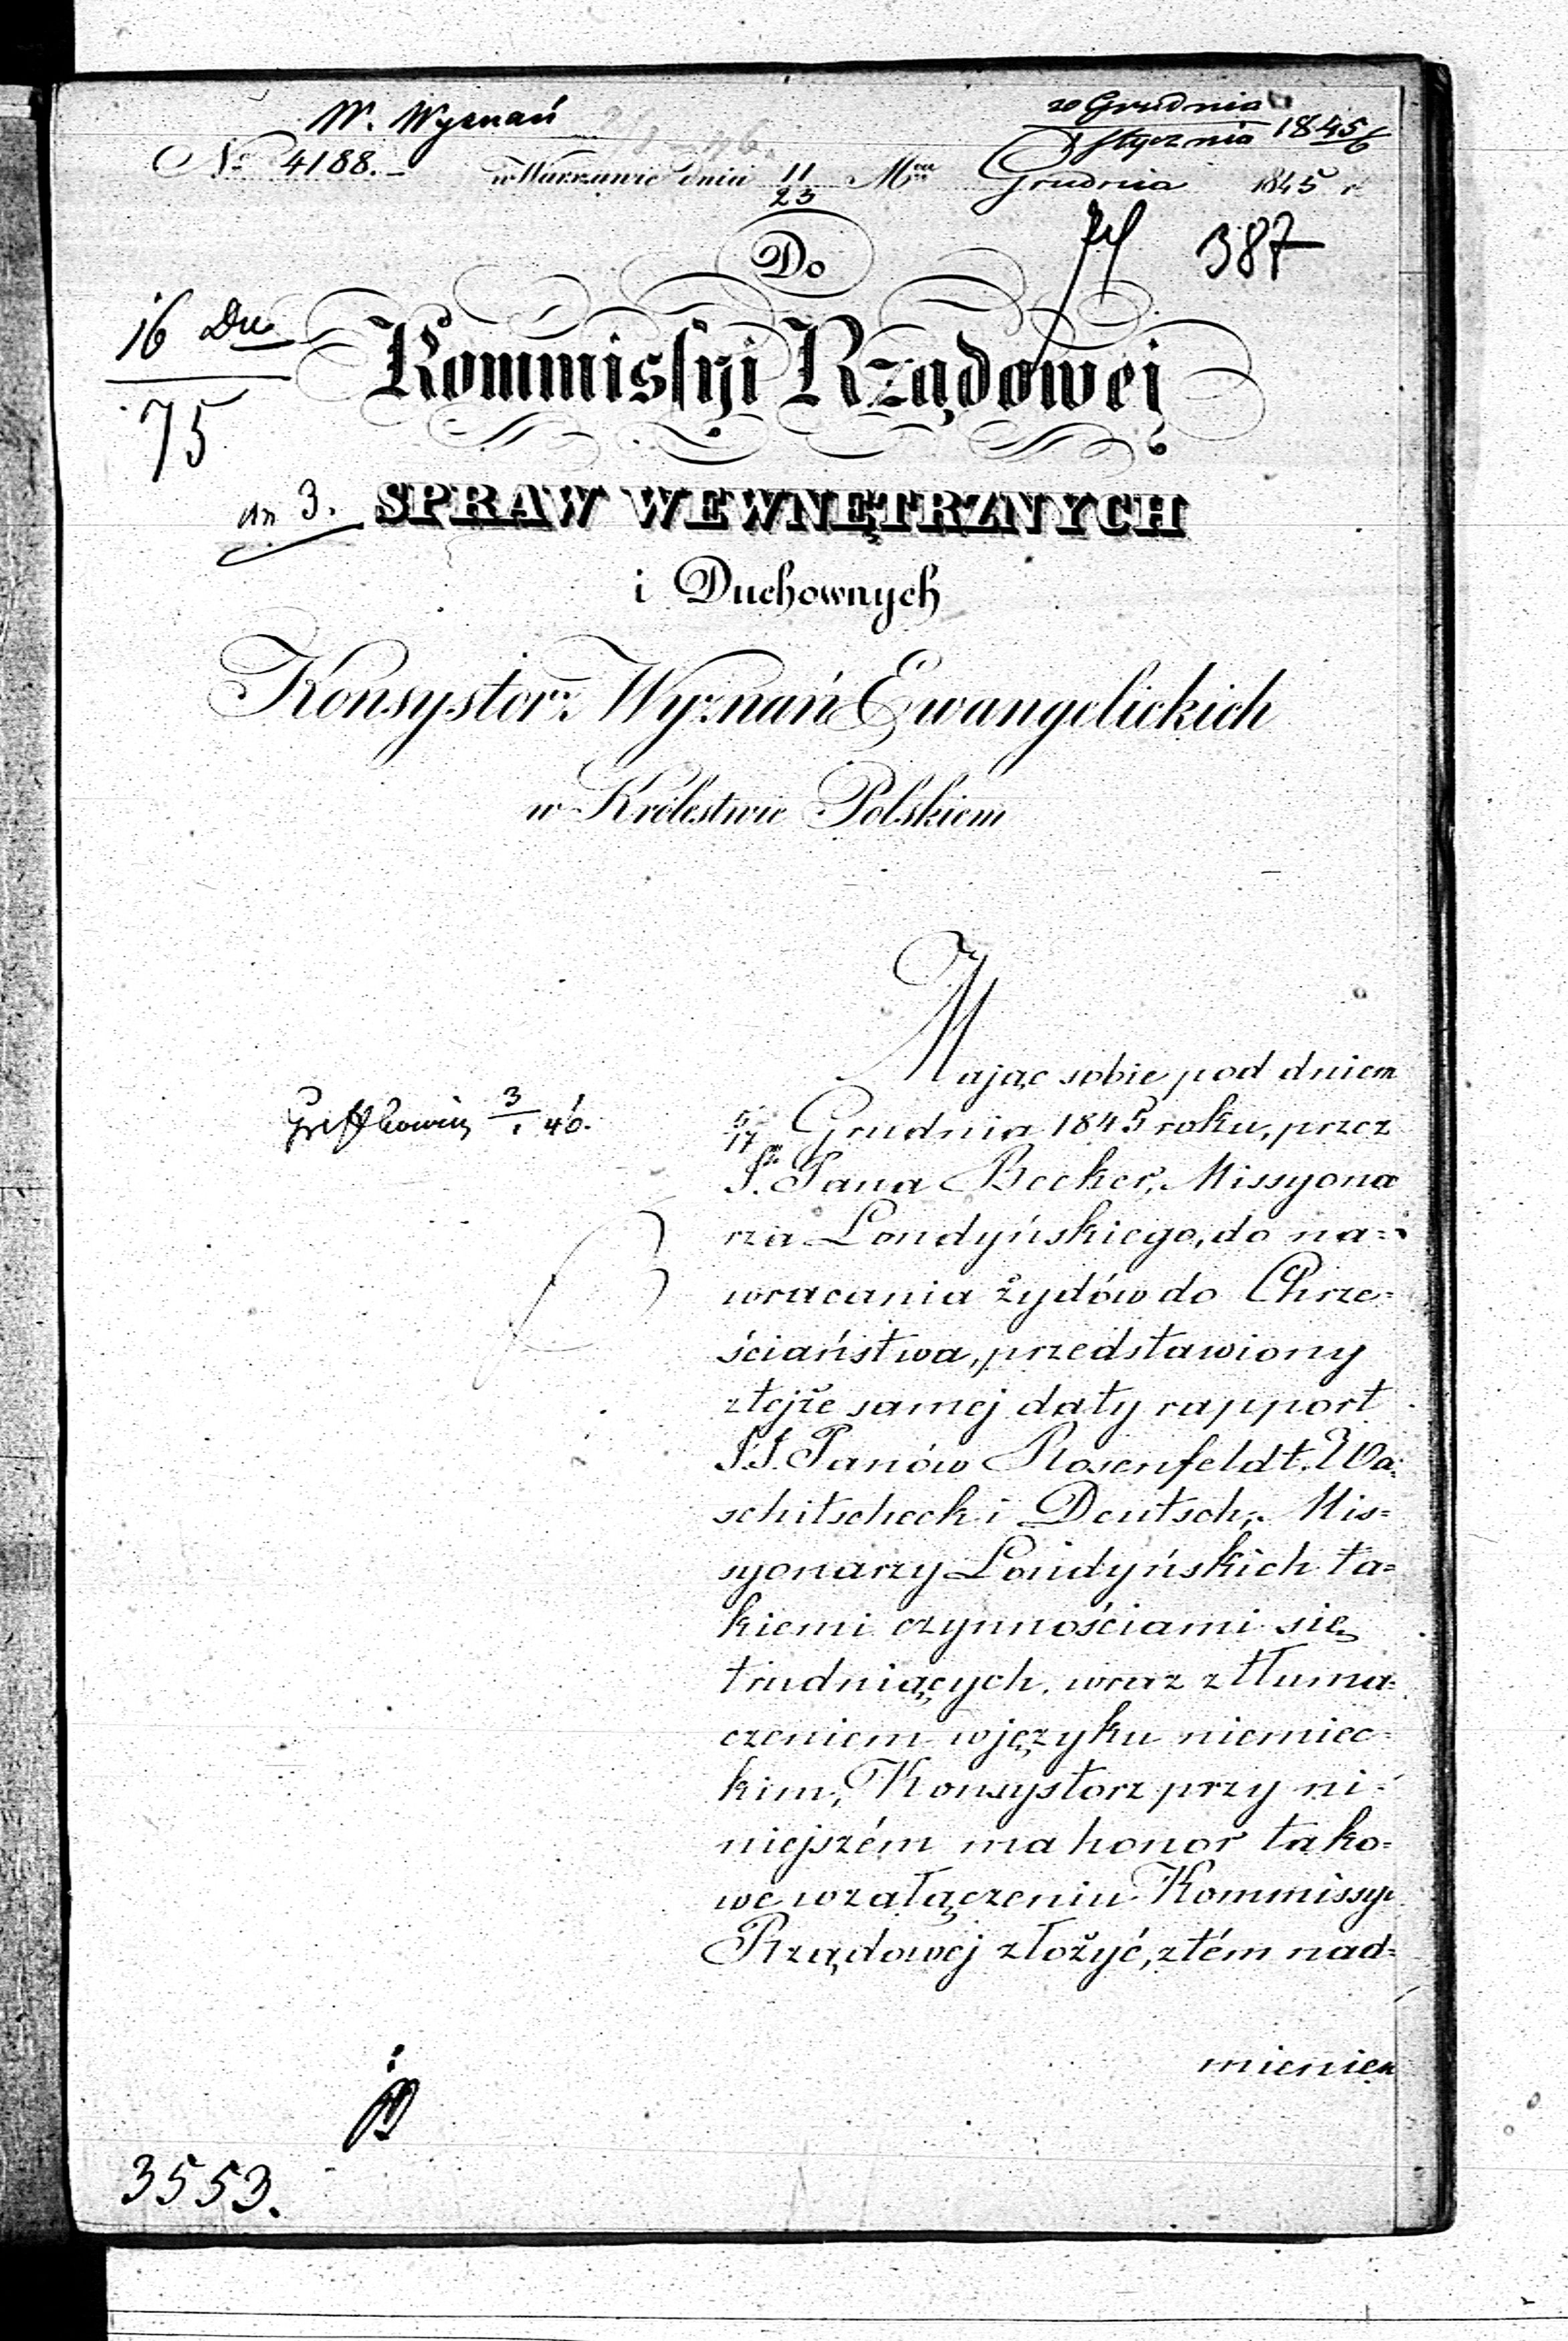 W. Wyznań
20 Grudnia
1 Stycznia 1845/6
No 4188.- w Warszawie dnia 11/23 Mca Grudnia 1845 r
387
Do
16 Du
75
Kommissyi Rządowej
3. SPRAW WEWNĘTRZNYCH
i Duchownych
Konsystorz Wyznań Ewangelickich
w Królestwie Polskiem
Mając sobie pod dniem
3/1 46.
5/17 Grudnia 1845 roku, przez
Pana Becker, Missyona
rza Londyńskiego, do na=
wracania żydów do Chrze=
ściaństwa, przedstawiony
z tejże samej daty rapport
Panów Rosenfeldt, Wa=
schitscheck i Deutsch, Mis=
syonarzy Londyńskich ta=
kiemi czynnościami się
trudniących, wraz z tłuma=
czeniem w języku niemiec=
kim, Konsystorz przy ni=
niejszém ma honor tako=
we w załączeniu Kommissyi
Rządowej złożyć, z tém nad=
mienien
3553.